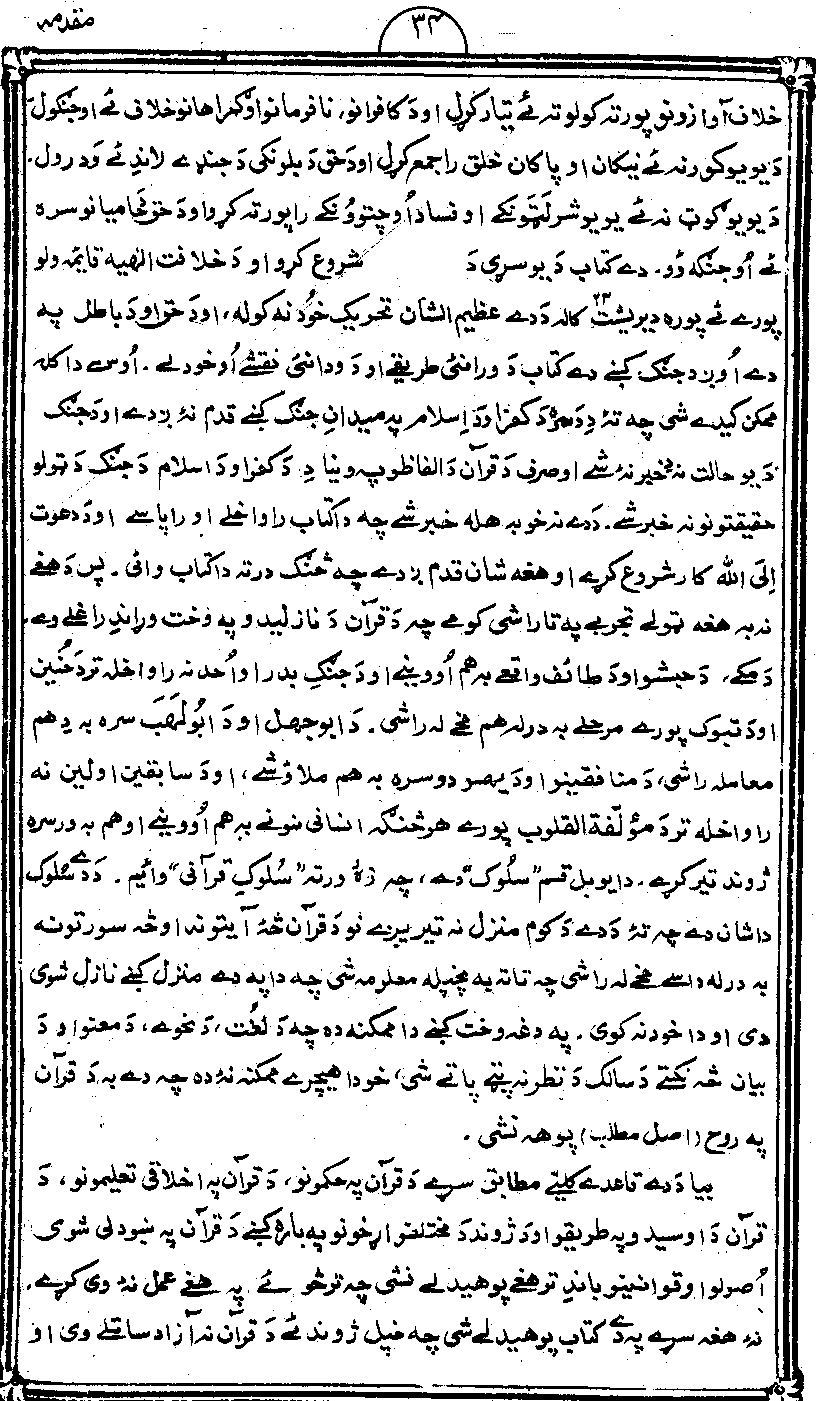 مقدمه
۳۴
خلاف آوازونو پورته کولو ته ئے تیار کړل او دَ کافرانو، نافرمانو او ګمراهانو خلاف ئے اوجنګول
دَ یو یو کور نه ئے نیکان او پاکان خلق راجمع کړل او دَ حق دَ بلونکی دَ جنډے لاندِ ئے ودرول.
دَ یو یو ګوټ نه ئے یو یو شر لټونکے او فساد اُوچتوونکے راپورته کړو او دَ حق حامیانو سره
ئے اُوجنګه وُو. دے کتاب دَ یو سړی دَ شروع کړو او دَ خلافت الٰهیه قایمه ولو
پورے ئے پوره دیریشت ۲۳ کاله دَ دے عظیم الشان تحریک خوُد نه کوله، او دَ حق او دَ باطل په
دے اُوږد جنګ کښے دے کتاب دَ ورانئ طریقے او دَ ودانئ نقشے اُوخودلے. اُوسے دا کله
ممکن کیدے شی چه تۀ دِ دَ سره دَ کفر او دَ اِسلام په میدانِ جنګ کښے قدم نۀ ږدے او دَ جنګ
دَ یو حالت نه خبر نۀ شے او صرف دَ قرآن دَ الفاظو په وینا دِ دَ کفر او دَ اسلام دَ جنګ دَ ټولو
حقیقتونو نه خبر شے. دَ دے نه خو به هله خبر شے چه دا کتاب راواخلے او راپاسے او دَ دعوت
اِلَی الله کار شروع کړے او هغه شان قدم ږدے چه څنګ درته دا کتاب وائی. پس دَ هغے
نه به هغه ټولے تجربے په تا راشی کومے چه دَ قرآن دَ نازلیدو په وخت وړاندِ راغلے دے.
دَ مکے، دَ حبشو او دَ طائف واقعے به هم اُووینے او دَ جنګِ بدر او اُحد نه راواخله تر دَ حُنین
او دَ تبوک پورے مرحلے به درله هم مخے له راشی. دَ ابوجهل او دَ ابُولهَب سره به دِ هم
معامله راشی، دَ منافقینو او دَ یهودو سره به هم ملاؤ شے، او دَ سابقین اولین نه
راواخله تر دَ مؤلّفة القلوب پورے هر څنګه انسانی نمونے به هم اُووینے او هم به ورسره
ژوند تیر کړے. دا یو بل قسم "سلُوک" دے، چه زۀ ورته "سُلوکِ قرآنی" وائیم. دَ دے سُلوک
دا شان دے چه تۀ دَ دے دَ کوم منزل نه تیریږے نو دَ قرآن څۀ آیتونه او څه سورتونه
به درله داسے مخے له راشی چه تا ته به پخپله معلومه شی چه دا په دے منزل کښے نازل شوی
دی او دا خود نه کوی. په دغه وخت کښے دا ممکنه ده چه دَ لغُت، دَ نحوے، دَ معنو او دَ
بیان څه نکتے دَ سالک دَ نظر نه پټے پاتے شی، خو دا هیچرے ممکنه نۀ ده چه دے به دَ قرآن
په روح (اصل مطلب) پوهه نشی.
بیا دَ دے قاعدے کلیے مطابق سړے دَ قرآن په حکمونو، دَ قرآن په اخلاقی تعلیمونو، دَ
قرآن دَ اوسیدو په طریقو او دَ ژوند دَ مختلفو اړخونو په باره کښے دَ قرآن په ښودلی شوی
اُصولو او قوانینو باندِ تر هغے پوهیدلے نشی چه تر څو ئے په هغے عمل نۀ وی کړے.
نۀ هغه سړے په دے کتاب پوهیدلے شی چه خپل ژوند ئے دَ قرآن نه آزاد ساتلے وی او